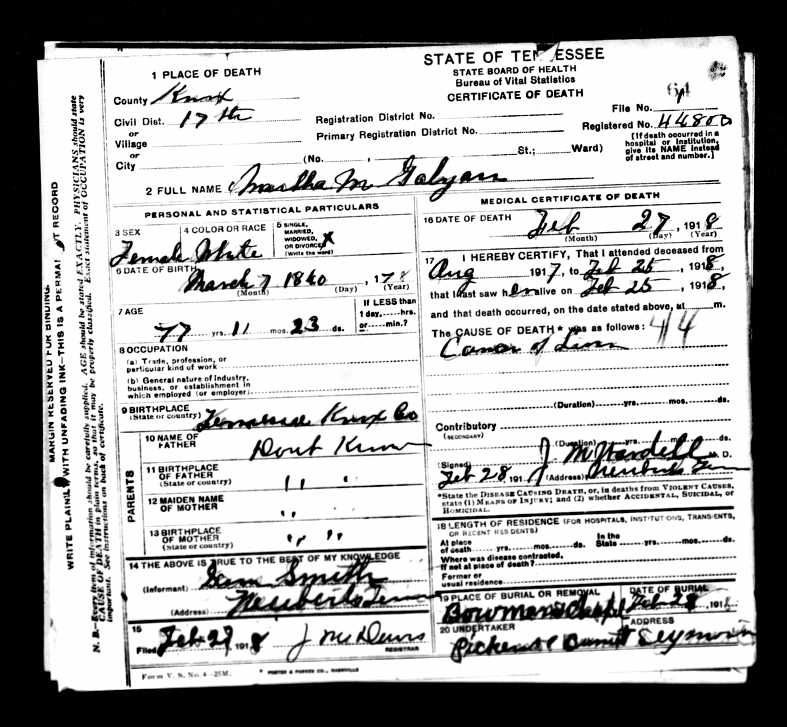 STATE OF TENNESSEE
STATE BOARD OF HEALTH
Bureau of Vital Statistics
CERTIFICATE OF DEATH
1 PLACE OF DEATH
County Knox
Civil Dist. 17th
or
Village
or
City
(No. , St.; Ward)
Registration District No.
Primary Registration District No.
File No.
Registered No. 44800
[If death occurred in a
hospital or institution,
give its NAME instead
of street and number.]
2 FULL NAME Martha M Galyan
PERSONAL AND STATISTICAL PARTICULARS
3 SEX
Female
4 COLOR OR RACE
White
5 SINGLE,
MARRIED,
WIDOWED,
OR DIVORCED
(Write the word)
X
6 DATE OF BIRTH
March 7 1840, 178
(Month) (Day) (Year)
7 AGE
77 yrs. 11 mos. 23 ds.
If LESS than
1 day,....hrs.
or.....min.?
8 OCCUPATION
(a) Trade, profession, or
particular kind of work
(b) General nature of industry,
business, or establishment in
which employed (or employer)
9 BIRTHPLACE
(State or country) Tennessee Knox Co
PARENTS
10 NAME OF
FATHER Dont Know
11 BIRTHPLACE
OF FATHER
(State or country) " "
12 MAIDEN NAME
OF MOTHER "
13 BIRTHPLACE
OF MOTHER
(State or country) " "
14 THE ABOVE IS TRUE TO THE BEST OF MY KNOWLEDGE
(Informant) Sam Smith
(Address) Neuberts Tenn
15
Filed Feb 27 1918 J
REGISTRAR
MEDICAL CERTIFICATE OF DEATH
16 DATE OF DEATH
Feb 27, 1918
(Month) (Day) (Year)
17 I HEREBY CERTIFY, That I attended deceased from
Aug 1917, to Feb 25, 1918,
that I last saw her alive on Feb 25, 1918,
and that death occurred, on the date stated above, at m.
The CAUSE OF DEATH * was as follows: 44
Cancer of Liver
(Duration) yrs. mos. ds.
Contributory
(SECONDARY)
(Duration) yrs. mos. ds.
(Signed) J M Wardell M. D.
Feb 28, 191 (Address) Neuberts Tenn
*State the DISEASE CAUSING DEATH, or, in deaths from VIOLENT CAUSES,
state (1) MEANS OF INJURY; and (2) whether ACCIDENTAL, SUICIDAL, or
HOMICIDAL.
18 LENGTH OF RESIDENCE (FOR HOSPITALS, INSTITUTIONS, TRANSIENTS,
OR RECENT RESIDENTS)
At place
of death yrs. mos. ds.
In the
State yrs. mos. ds.
Where was disease contracted,
if not at place of death?
Former or
usual residence
19 PLACE OF BURIAL OR REMOVAL
Bowmans Chapel
DATE OF BURIAL
Feb 28, 191
20 UNDERTAKER
Pickens & Barnett
ADDRESS
Seymour
Form V. S. No. 4—25M.
FOSTER & PARKES CO., NASHVILLE
MARGIN RESERVED FOR BINDING.
WRITE PLAINLY WITH UNFADING INK—THIS IS A PERMANENT RECORD
N. B.—Every item of information should be carefully supplied. AGE should be stated EXACTLY. PHYSICIANS should state
CAUSE OF DEATH in plain terms, so that it may be properly classified. Exact statement of OCCUPATION is very
important. See instructions on back of certificate.